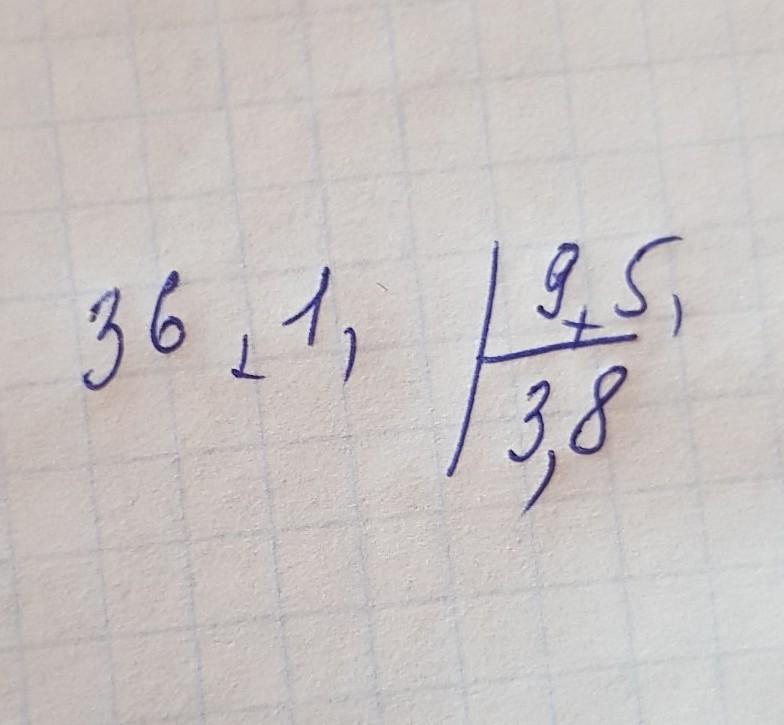 36,1, 9,5,
3,8